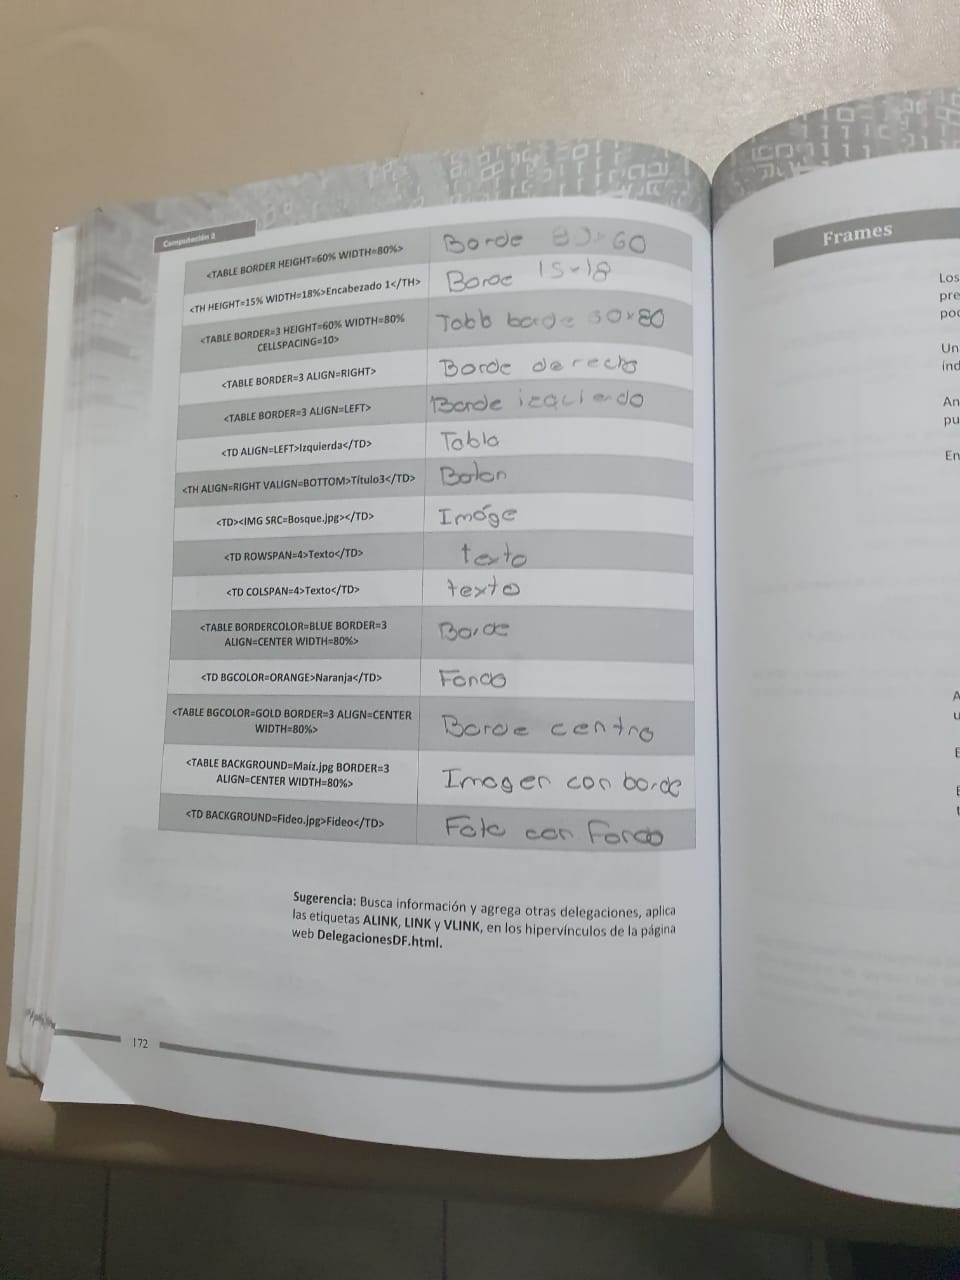 Computación 2
<TABLE BORDER HEIGHT=60% WIDTH=80%>
Borde 80x60
<TH HEIGHT=15% WIDTH=18%>Encabezado 1</TH>
Borde 15x18
<TABLE BORDER=3 HEIGHT=60% WIDTH=80%
CELLSPACING=10>
borde 80
<TABLE BORDER=3 ALIGN=RIGHT>
Borde derecho
<TABLE BORDER=3 ALIGN=LEFT>
Borde
<TD ALIGN=LEFT>Izquierda</TD>
Tabla
<TH ALIGN=RIGHT VALIGN=BOTTOM>Título3</TD>
<TD><IMG SRC=Bosque.jpg></TD>
Imáge
<TD ROWSPAN=4>Texto</TD>
texto
<TD COLSPAN=4>Texto</TD>
texto
<TABLE BORDERCOLOR=BLUE BORDER=3
ALIGN=CENTER WIDTH=80%>
Borde
<TD BGCOLOR=ORANGE>Naranja</TD>
Fondo
<TABLE BGCOLOR=GOLD BORDER=3 ALIGN=CENTER
WIDTH=80%>
Borde centro
<TABLE BACKGROUND=Maíz.jpg BORDER=3
ALIGN=CENTER WIDTH=80%>
Imagen con borde
<TD BACKGROUND=Fideo.jpg>Fideo</TD>
con Fondo
Sugerencia: Busca información y agrega otras delegaciones, aplica
las etiquetas ALINK, LINK y VLINK, en los hipervínculos de la página
web DelegacionesDF.html.
172
Frames
Los
pre
poc
Un
ind
An
pu
En
A
u